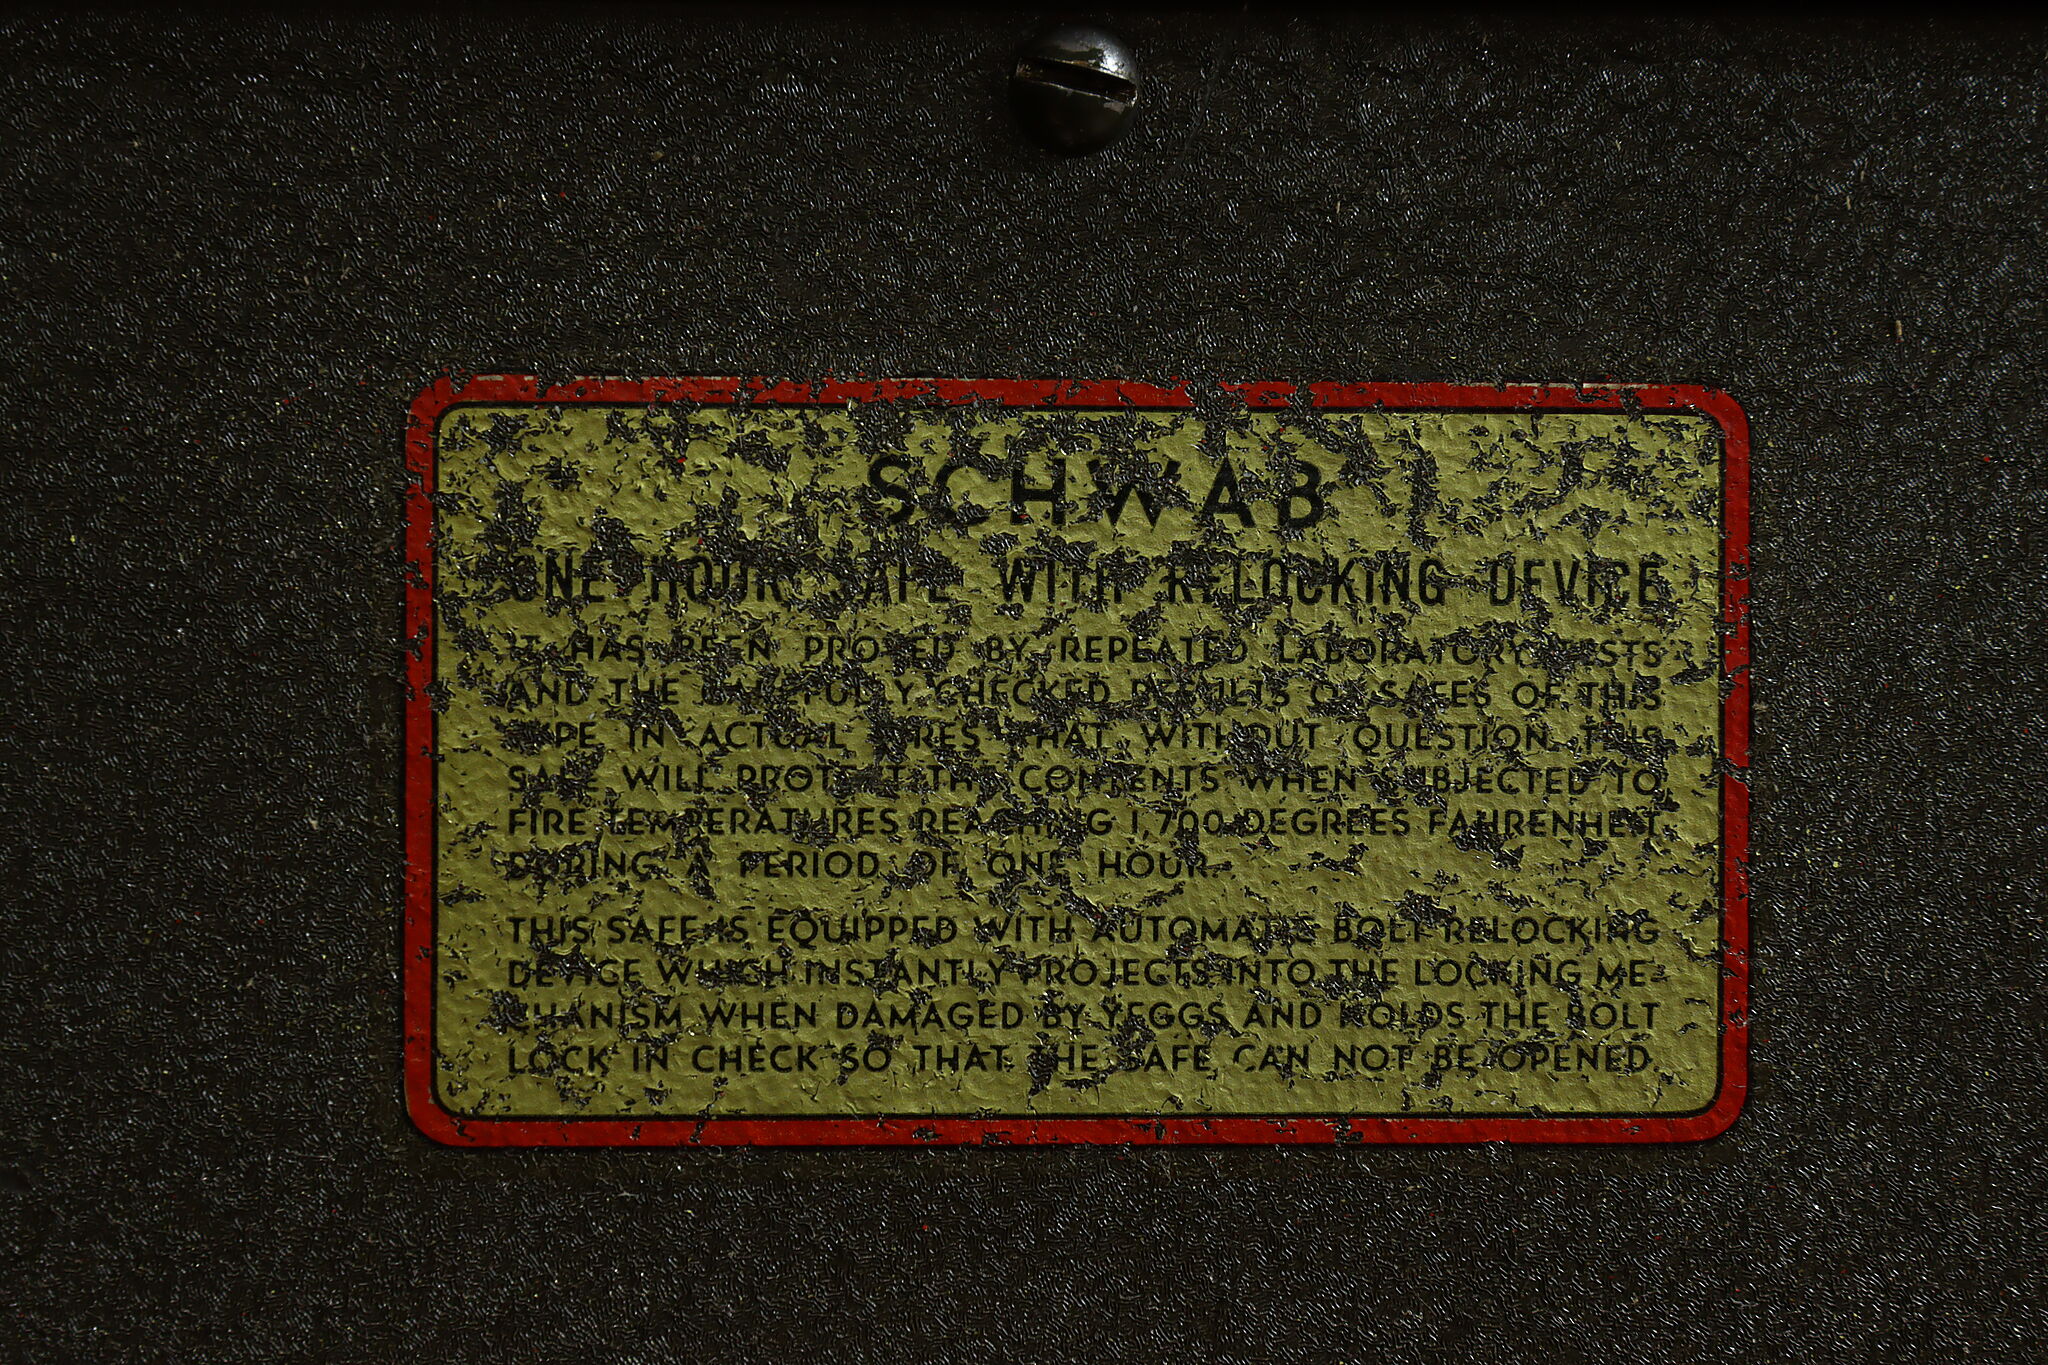 SCHWAB
ONE HOUR SAFE WITH RELOCKING DEVICE
IT HAS BEEN PROVED BY REPEATED LABORATORY TESTS
AND THE CAREFULLY CHECKED RESULTS OF SAFES OF THIS
TYPE IN ACTUAL FIRES THAT WITHOUT QUESTION THIS
SAFE WILL PROTECT THE CONTENTS WHEN SUBJECTED TO
FIRE TEMPERATURES REACHING 1,700 DEGREES FAHRENHEIT
DURING A PERIOD OF ONE HOUR.
THIS SAFE IS EQUIPPED WITH AUTOMATIC BOLT RELOCKING
DEVICE WHICH INSTANTLY PROJECTS INTO THE LOCKING ME-
CHANISM WHEN DAMAGED BY YEGGS AND HOLDS THE BOLT
LOCK IN CHECK SO THAT THE SAFE CAN NOT BE OPENED.